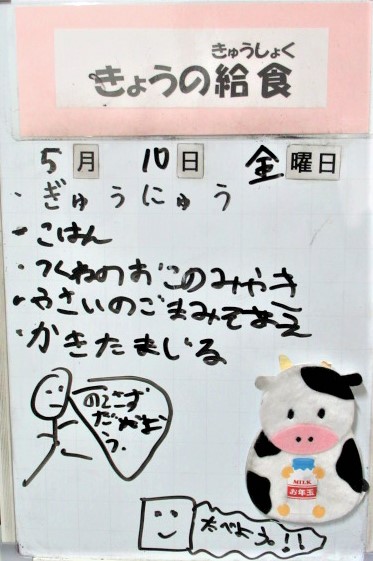 きゅうしょく
きょうの給食
5月 10日 金曜日
・ぎゅうにゅう
・ごはん
・つくねのおこのみやき
・やさいのごまみそあえ
・かきたまじる
のこさず
う.
MILK
お年玉
たべよう!!